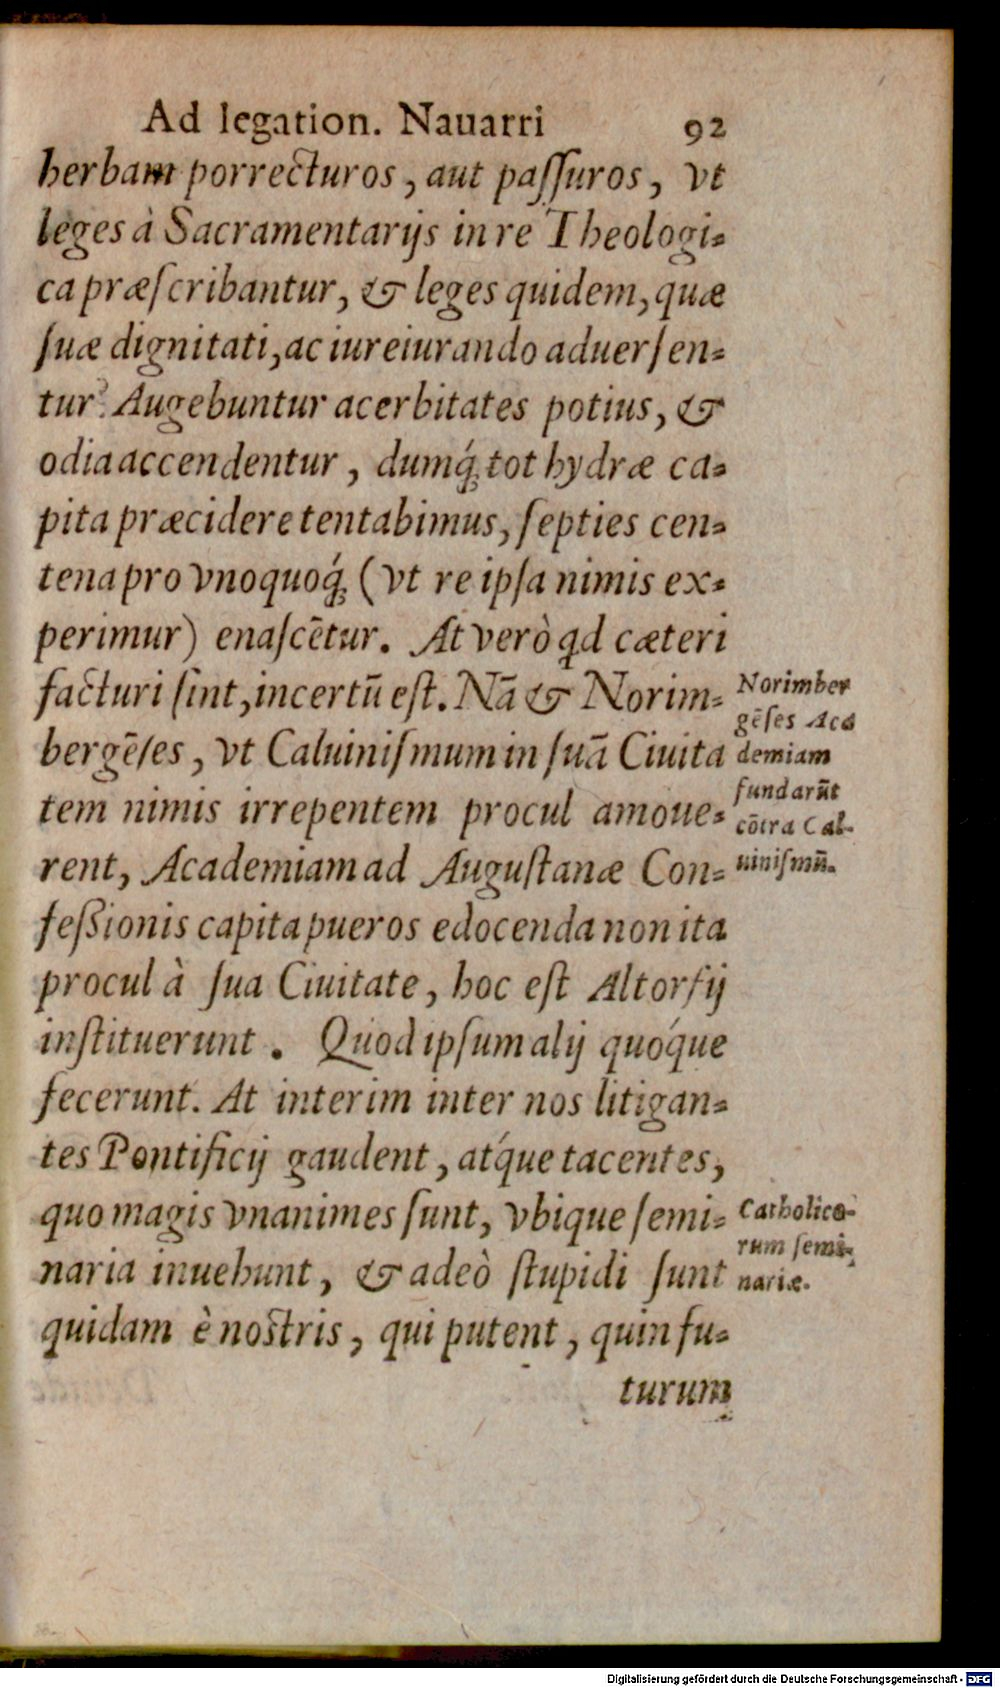 Ad legation. Nauarri 92
herbam porrecturos, aut paſſuros, vt
leges à Sacramentarijs in re Theologi-
ca præſcribantur, & leges quidem, quæ
ſuæ dignitati, ac iureiurando aduerſen-
tur? Augebuntur acerbitates potius, &
odia accendentur, dumq́; tot hydræ ca-
pita præcidere tentabimus, ſepties cen-
tena pro vnoquoq́; (vt re ipſa nimis ex-
perimur) enaſcētur. At verò qd cæteri
facturi ſint, incertū eſt. Nā & Norim-
bergēſes, vt Caluiniſmum in ſuā Ciuita
tem nimis irrepentem procul amoue-
rent, Academiam ad Auguſtanæ Con-
feßionis capita pueros edocenda non ita
procul à ſua Ciuitate, hoc eſt Altorfij
inſtituerunt. Quod ipſum alij quóque
fecerunt. At interim inter nos litigan-
tes Pontificij gaudent, atq́ue tacentes,
quo magis vnanimes ſunt, vbique ſemi-
naria inuehunt, & adeò ſtupidi ſunt
quidam è nostris, qui putent, quin fu-
turum
Norimber
gēſes Aca
demiam
fundarūt
cōtra Cal-
uiniſmū.
Catholico-
rum ſemi-
nariæ.
Digitalisierung gefördert durch die Deutsche Forschungsgemeinschaft - DFG